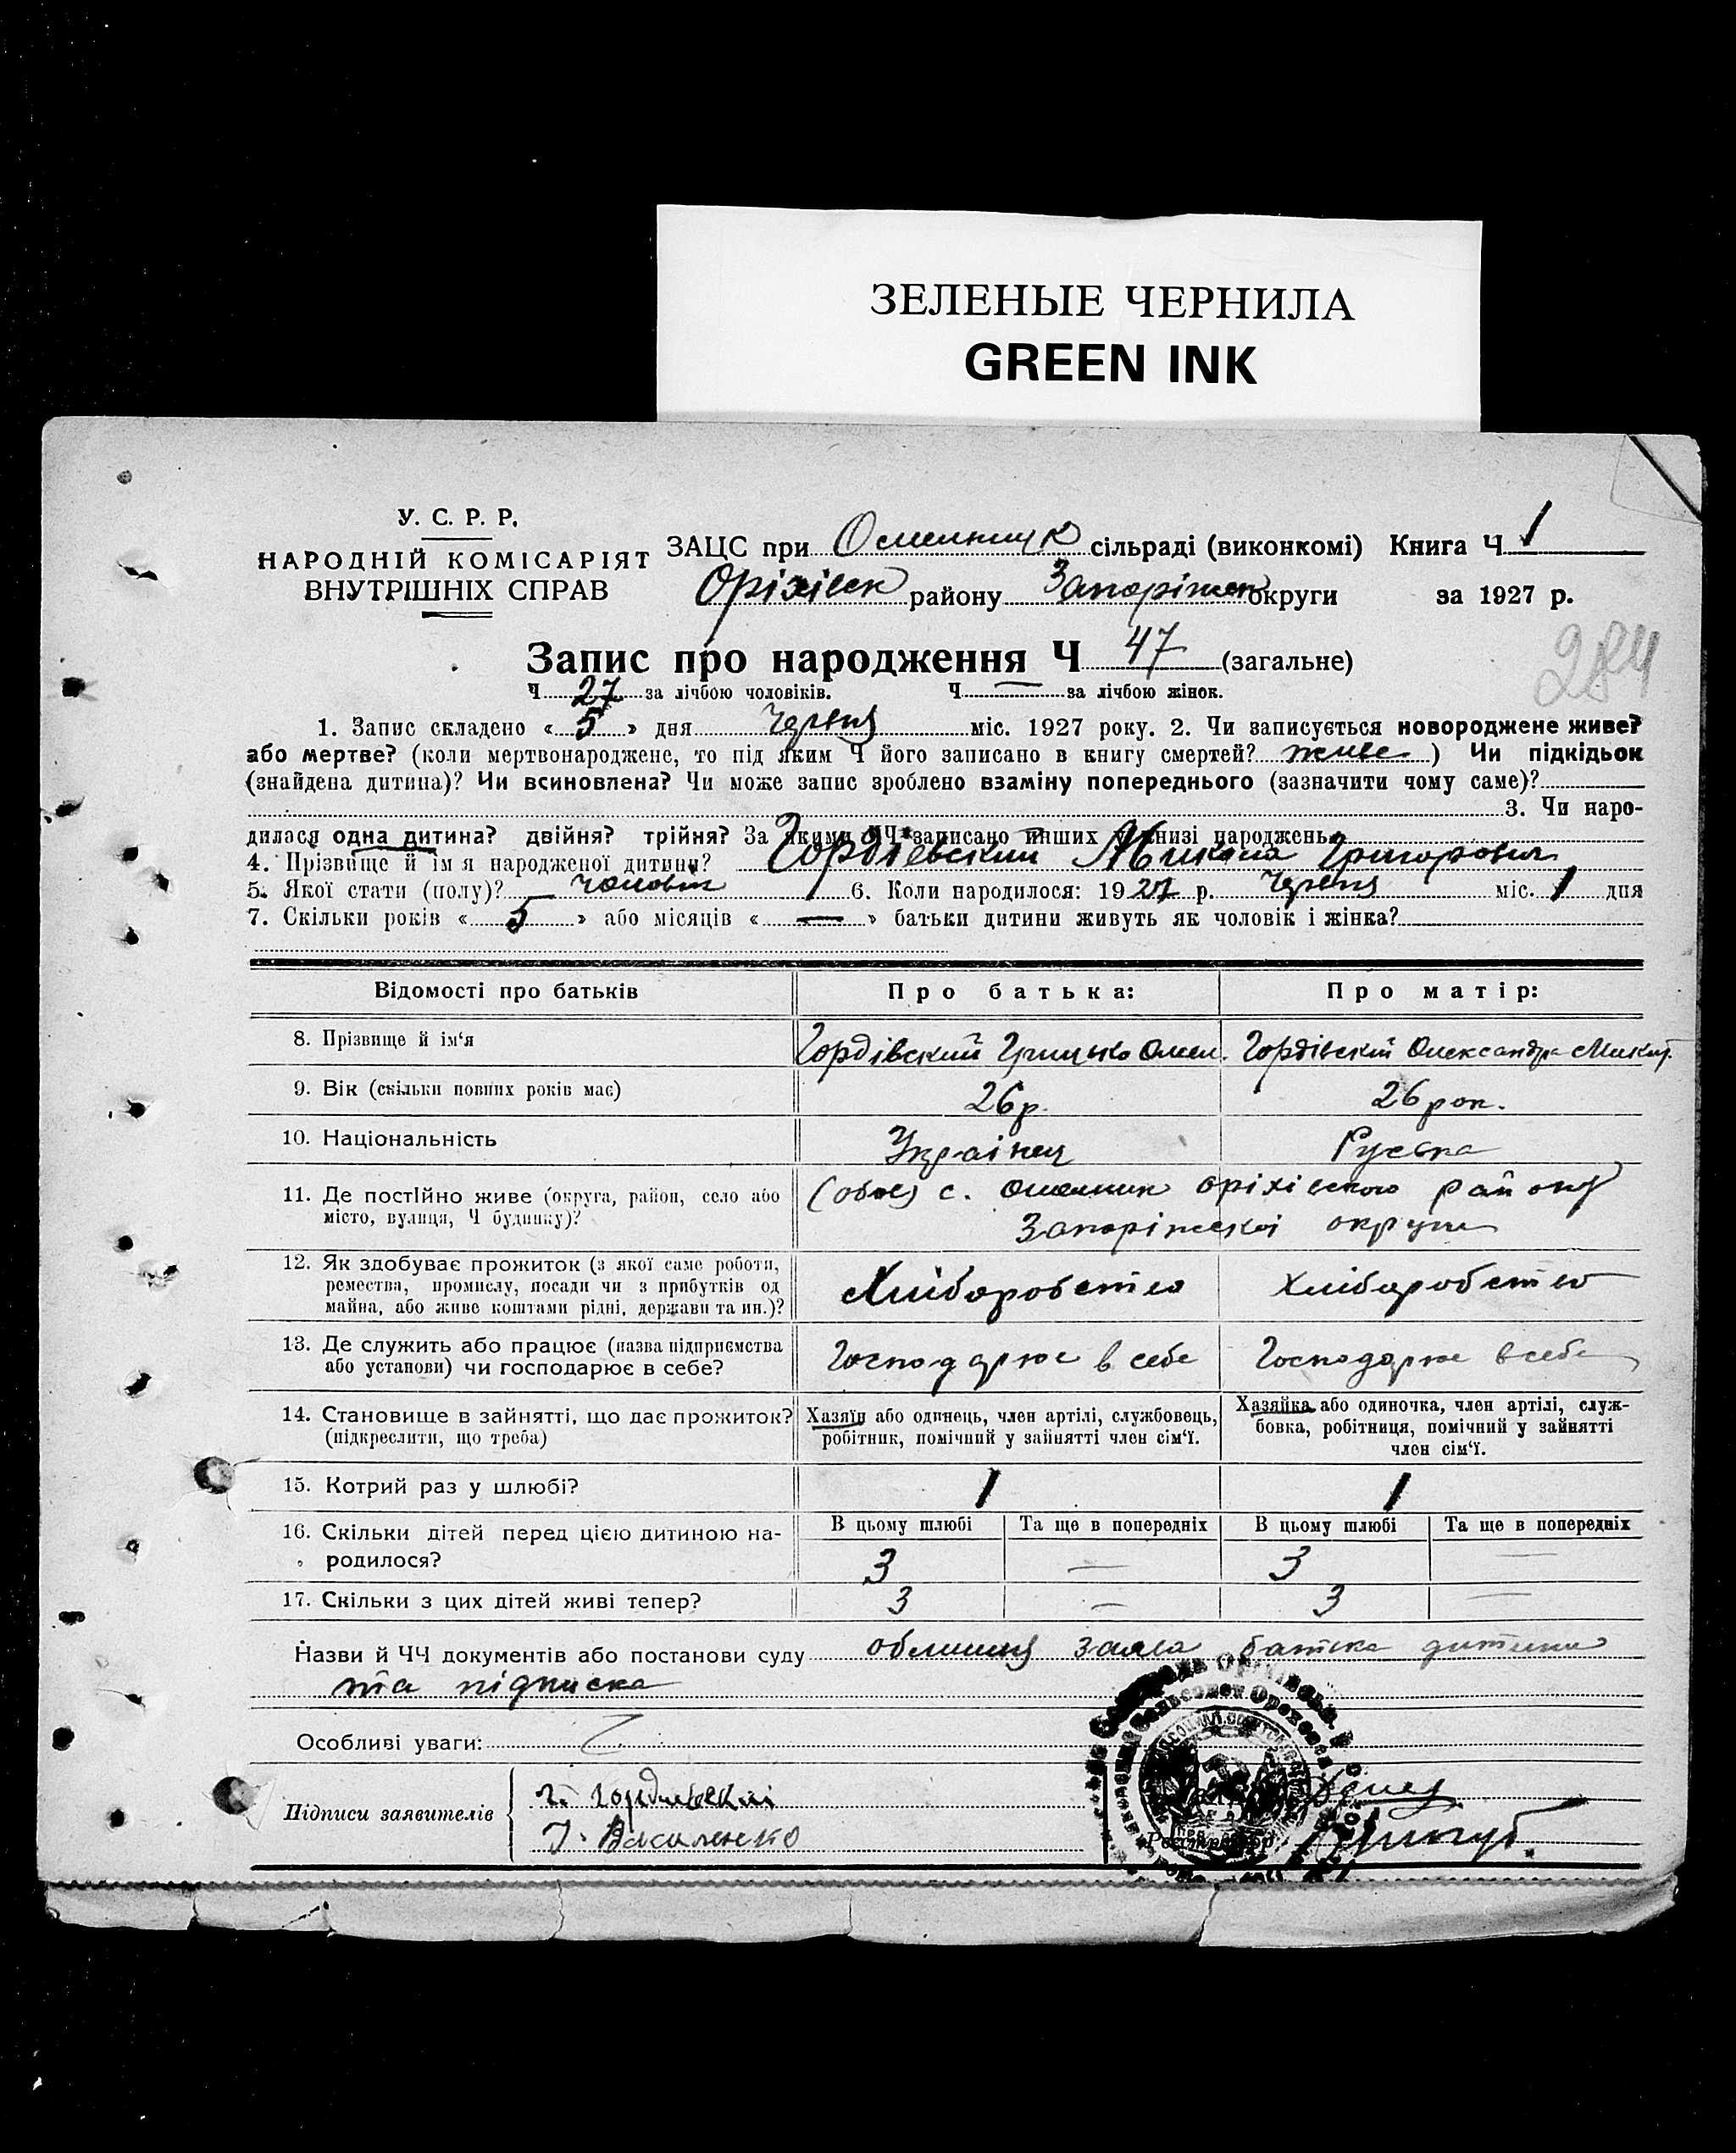 ЗЕЛЕНЫЕ ЧЕРНИЛА
GREEN INK
У. С. Р. Р.
НАРОДНІЙ КОМІСАРІЯТ
ВНУТРІШНІХ СПРАВ
ЗАЦС при Омельник сільраді (виконкомі) Книга Ч 1
Оріхівськ району Запоріжськ округи за 1927 р.
Запис про народження Ч 47 (загальне)
284
Ч 27 за лічбою чоловіків. Ч — за лічбою жінок.
1. Запис складено « 5 » дня Червня міс. 1927 року. 2. Чи записується новороджене живе?
або мертве? (коли мертвонароджене, то під яким Ч його записано в книгу смертей? живе ) Чи підкідьок
(знайдена дитина)? Чи всиновлена? Чи може запис зроблено взаміну попереднього (зазначити чому саме)?
3. Чи наро-
дилася одна дитина? двійня? трійня? За якими ЧЧ записано инших у книзі народжень
4. Прізвище й ім'я народженої дитини? Гордієвский Микола Григорович
5. Якої стати (полу)? чоловіч 6. Коли народилося: 1927 р. Червня міс. 1 дня
7. Скільки років « 5 » або місяців « — » батьки дитини живуть як чоловік і жінка?
Відомості про батьків
Про батька:
Про матір:
8. Прізвище й ім'я
Гордівский Грицько Омел.
Гордівскій Олександра Микит.
9. Вік (скільки повних років має)
26 р.
26 рок.
10. Національність
Українец
Руська
11. Де постійно живе (округа, район, село або
місто, вулиця, Ч будинку)?
(обоє) с. Омельник Оріхівского району
Запоріжської округи
12. Як здобуває прожиток (з якої саме роботи,
ремества, промислу, посади чи з прибутків од
майна, або живе коштами рідні, держави та ин.)?
Хліборобство
Хліборобство
13. Де служить або працює (назва підприємства
або установи) чи господарює в себе?
Господарює в себе
Господарює в себе
14. Становище в зайнятті, що дає прожиток?
(підкреслити, що треба)
Хазяїн або одинець, член артілі, службовець,
робітник, помічний у зайнятті член сім'ї.
Хазяйка або одиночка, член артілі, служ-
бовка, робітниця, помічний у зайнятті
член сім'ї.
15. Котрий раз у шлюбі?
1
1
16. Скільки дітей перед цією дитиною на-
родилося?
В цьому шлюбі
Та ще в попередніх
В цьому шлюбі
Та ще в попередніх
3
—
3
—
17. Скільки з цих дітей живі тепер?
3
—
3
—
Назви й ЧЧ документів або постанови суду заява батька дитини
та підписка
Особливі уваги:
Підписи заявителів
Г. Гордиевский
І. Василенко